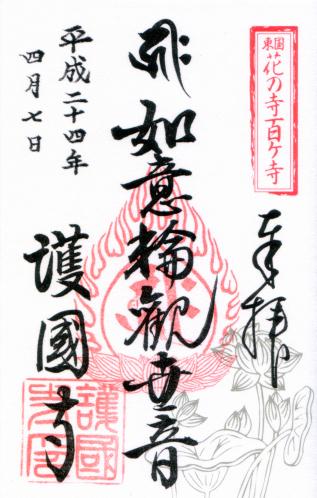 東国花の寺百ケ寺
奉拝
如意輪観世音
護國寺
平成二十四年
四月七日